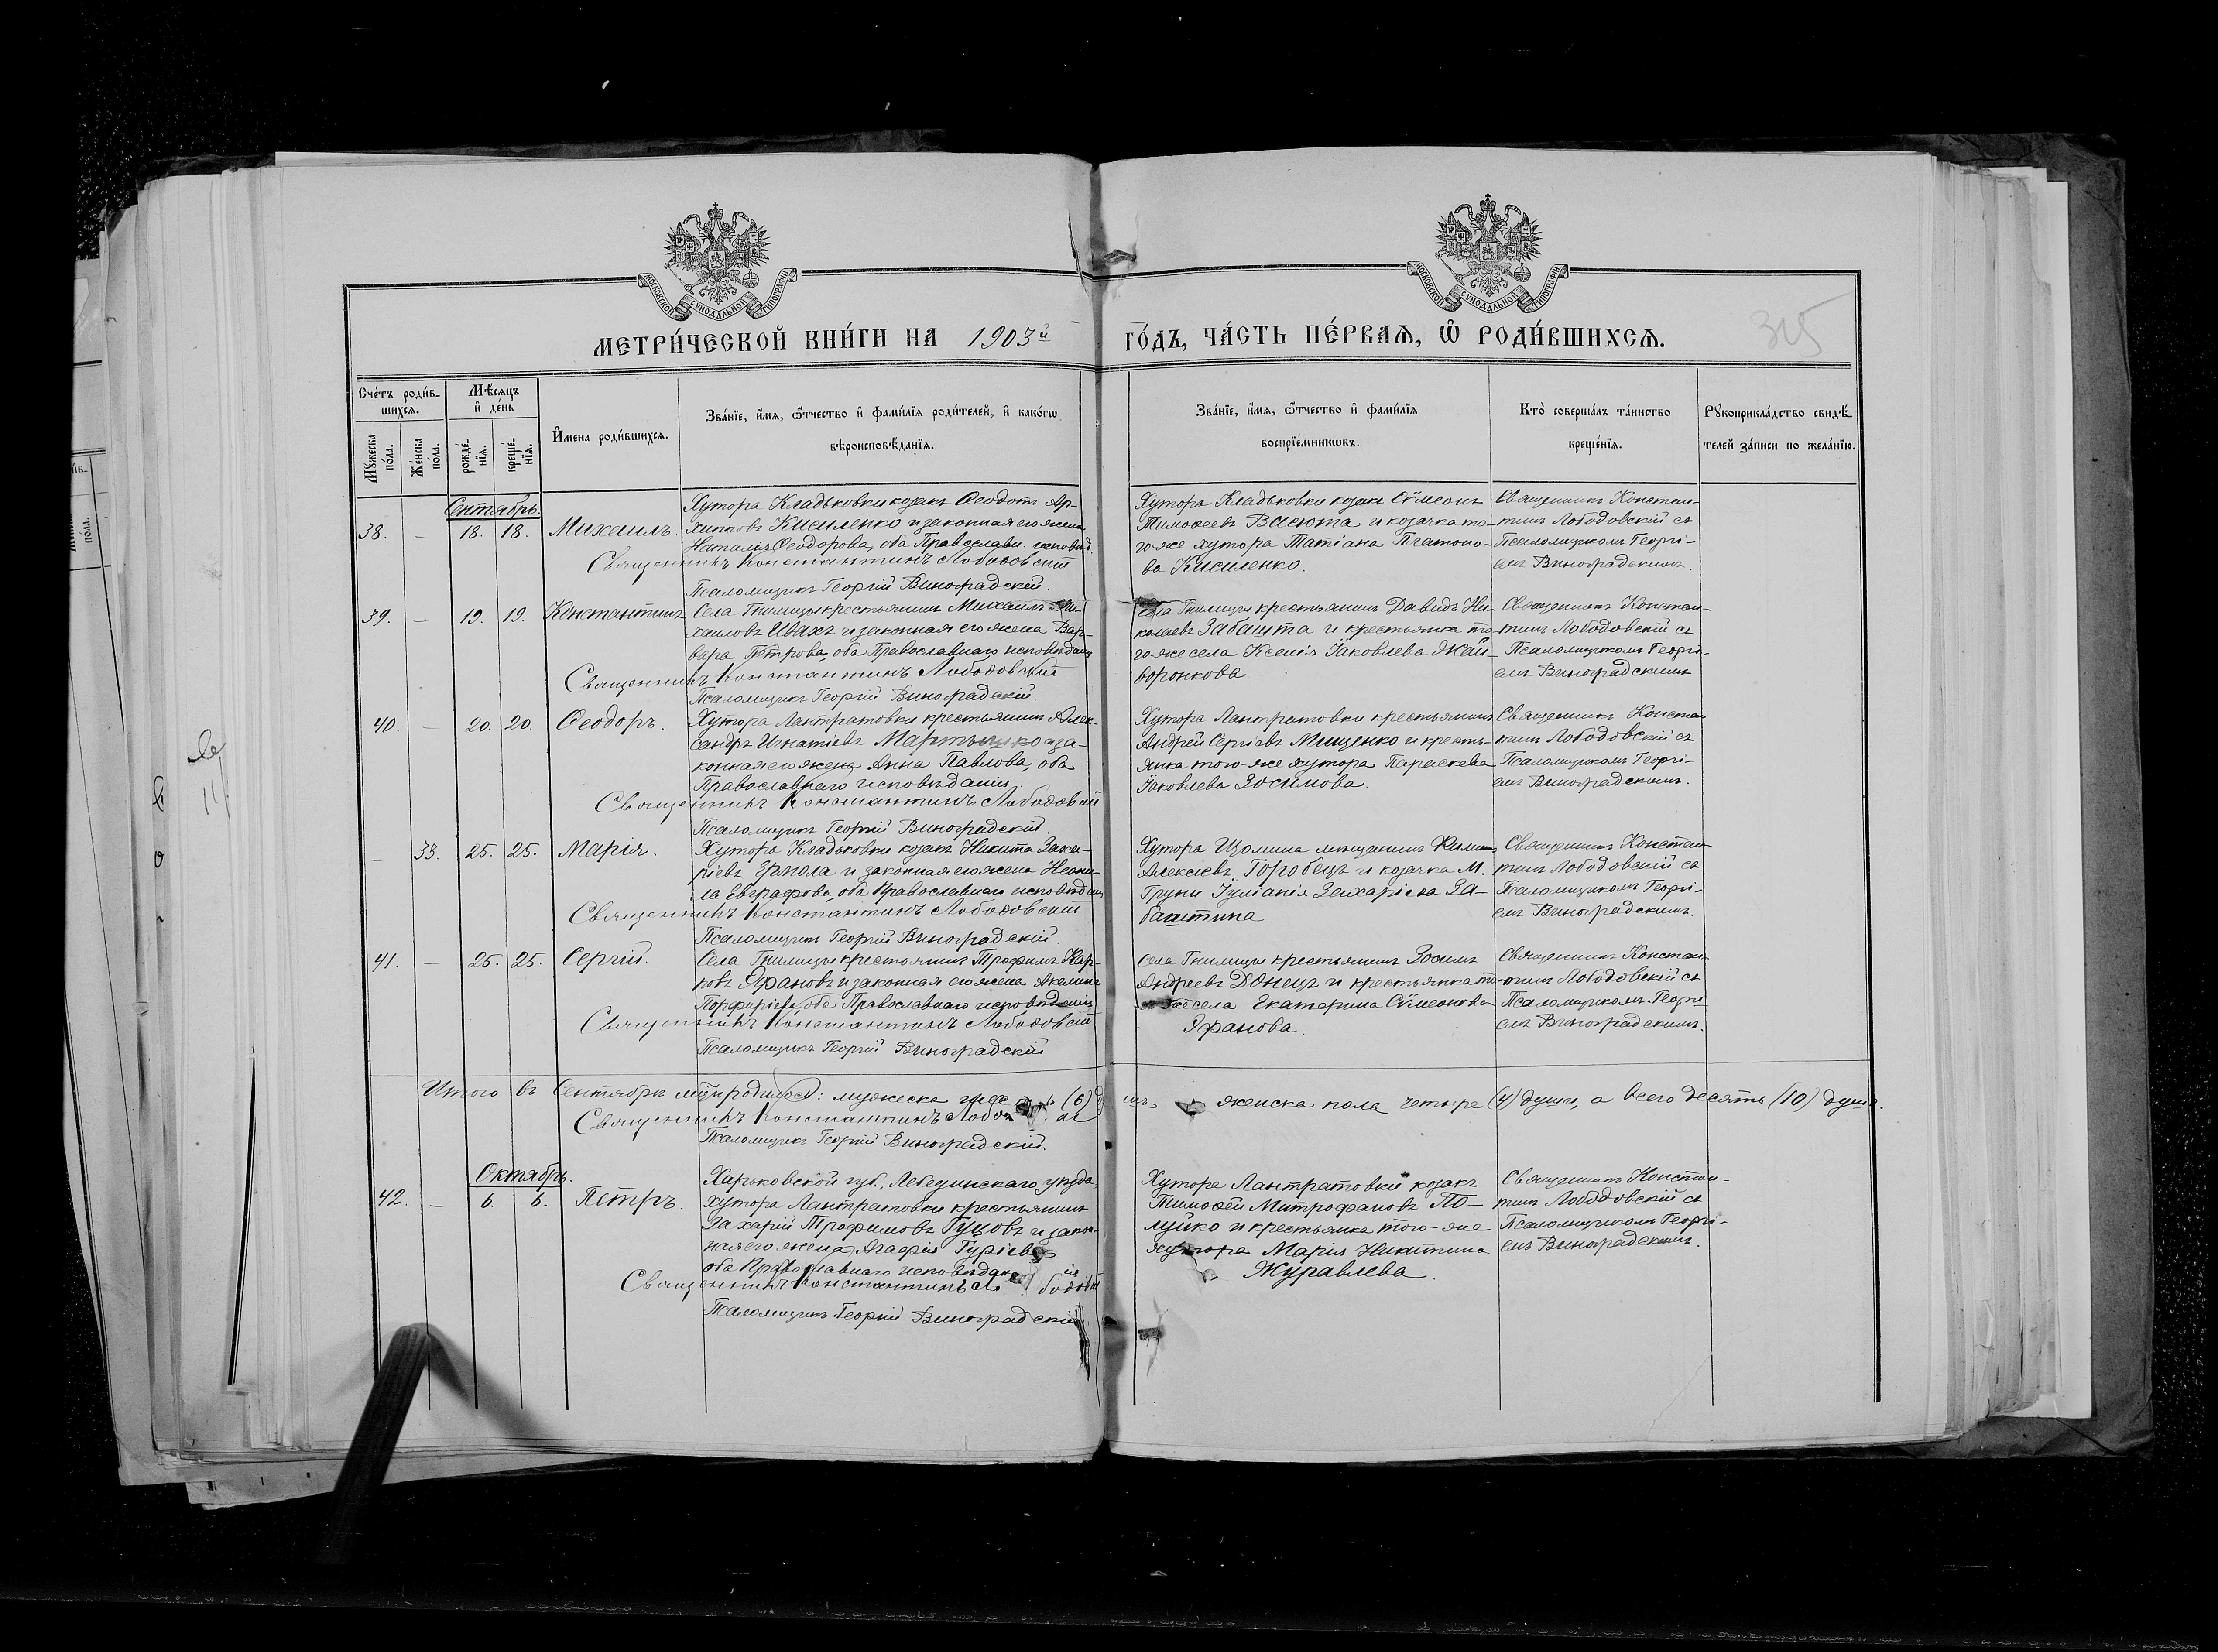 МОСКОВСКОЙ СѴНОДАЛЬНОЙ ТИПОГРАФІИ
МОСКОВСКОЙ СѴНОДАЛЬНОЙ ТИПОГРАФІИ
МЕТРИ́ЧЕСКОЙ КНИ́ГИ НА 1903й го́дъ, ча́сть пе́рваѧ, ѡ҆ роди́вшихсѧ.
315
Сче́тъ роди́в-
шихсѧ.
Мѣ́сѧцъ
и҆ де́нь
Мꙋ́жеска
по́ла.
Же́нска
по́ла.
рожде́-
нїѧ.
креще́-
нїѧ.
И҆мена роди́вшихсѧ.
Зва́нїе, и҆́мѧ, ѻ҆́тчество и҆ фами́лїѧ роди́телей, и҆ како́гѡ
вѣроисповѣ́данїѧ.
Зва́нїе, и҆́мѧ, ѻ҆́тчество и҆ фами́лїѧ
воспрїе́мникѡвъ.
Кто̀ соверша́лъ та́инство
креще́нїѧ.
Рꙋкоприкла́дство свидѣ́-
телей за́писи по жела́нїю.
Сентябрь.
38.
—
18.
18.
Михаилъ.
Хутора Кладьковки козакъ Ѳеодотъ Ар-
хиповъ Кисиленко и законная его жена
Наталія Ѳеодорова, оба Православн. исповѣд.
Священникъ Константинъ Лободовскій
Псаломщикъ Георгій Виноградскій.
Хутора Кладьковки козакъ Сѵмеонъ
Тимоѳеевъ Васюта и козачка то-
го-же хутора Татіана Платоно-
ва Кисиленко.
Священникъ Констан-
тинъ Лободовскій съ
Псаломщикомъ Георгі-
емъ Виноградскимъ.
39.
—
19.
19.
Константинъ
Села Гнилицы крестьянинъ Михаилъ Ми-
хаиловъ Ивахъ и законная его жена Вар-
вара Петрова, оба Православнаго исповѣданія
Священникъ Константинъ Лободовскій
Псаломщикъ Георгій Виноградскій.
Села Гнилицы крестьянинъ Давидъ Ни-
колаевъ Забашта и крестьянка то-
го-же села Ксенія Іаковлева Жай-
воронкова
Священникъ Констан-
тинъ Лободовскій съ
Псаломщикомъ Георгі-
емъ Виноградскимъ
40.
—
20.
20.
Ѳеодоръ.
Хутора Лантратовки крестьянинъ Алек-
сандръ Игнатіевъ Мартышко и за-
конная его жена Анна Павлова, оба
Православнаго исповѣданія.
Священникъ Константинъ Лободовскій
Псаломщикъ Георгій Виноградскій.
Хутора Лантратовки крестьянинъ
Андрей Сергіевъ Мищенко и кресть-
янка того-же хутора Параскева
Іаковлева Зосимова.
Священникъ Констан-
тинъ Лободовскій съ
Псаломщикомъ Георгі-
емъ Виноградскимъ.
—
33.
25.
25.
Марія.
Хутора Кладьковки козакъ Никита Заха-
ріевъ и законная его жена Неони-
ла Евграфова, оба Православнаго исповѣданія
Священникъ Константинъ Лободовскій
Псаломщикъ Георгій Виноградскій.
Хутора мѣщанинъ
Алексіевъ Горобецъ и козачка М.
Груни Іуліанія Захаріева За-
баштина
Священникъ Констан-
тинъ Лободовскій съ
Псаломщикомъ Георгі-
емъ Виноградскимъ.
41.
—
25.
25.
Сергій.
Села Гнилицы крестьянинъ Трофимъ Кар-
повъ Яфановъ и законная его жена Акилина
Порфиріева, оба Православнаго исповѣданія
Священникъ Константинъ Лободовскій
Псаломщикъ Георгій Виноградскій
Села Гнилицы крестьянинъ Зосимъ
Андреевъ Донецъ и крестьянка то-
го-же села Екатерина Сѵмеонова
Яфанова.
Священникъ Констан-
тинъ Лободовскій съ
Псаломщикомъ Георгі-
емъ Виноградскимъ.
Итого въ Сентябрѣ родилось: мужеска (6) женска пола четыре (4) души, а всего десять (10) душъ.
Священникъ Константинъ
Псаломщикъ Георгій Виноградскій.
Октябрь.
42.
—
6.
6.
Петръ.
Харьковской губ., Лебединскаго уѣзда,
хутора Лантратовки крестьянинъ
Захарій Трофимовъ Гуцовъ и закон-
ная его жена Агафія Гуріева
оба Православнаго исповѣданія
Священникъ Константинъ
Псаломщикъ Георгій Виноградскій
Хутора Лантратовки козакъ
Тимоѳей Митрофановъ По-
луйко и крестьянка того-же
хутора Марія Никитина
Журавлева.
Священникъ Констан-
тинъ Лободовскій съ
Псаломщикомъ Георгі-
емъ Виноградскимъ.